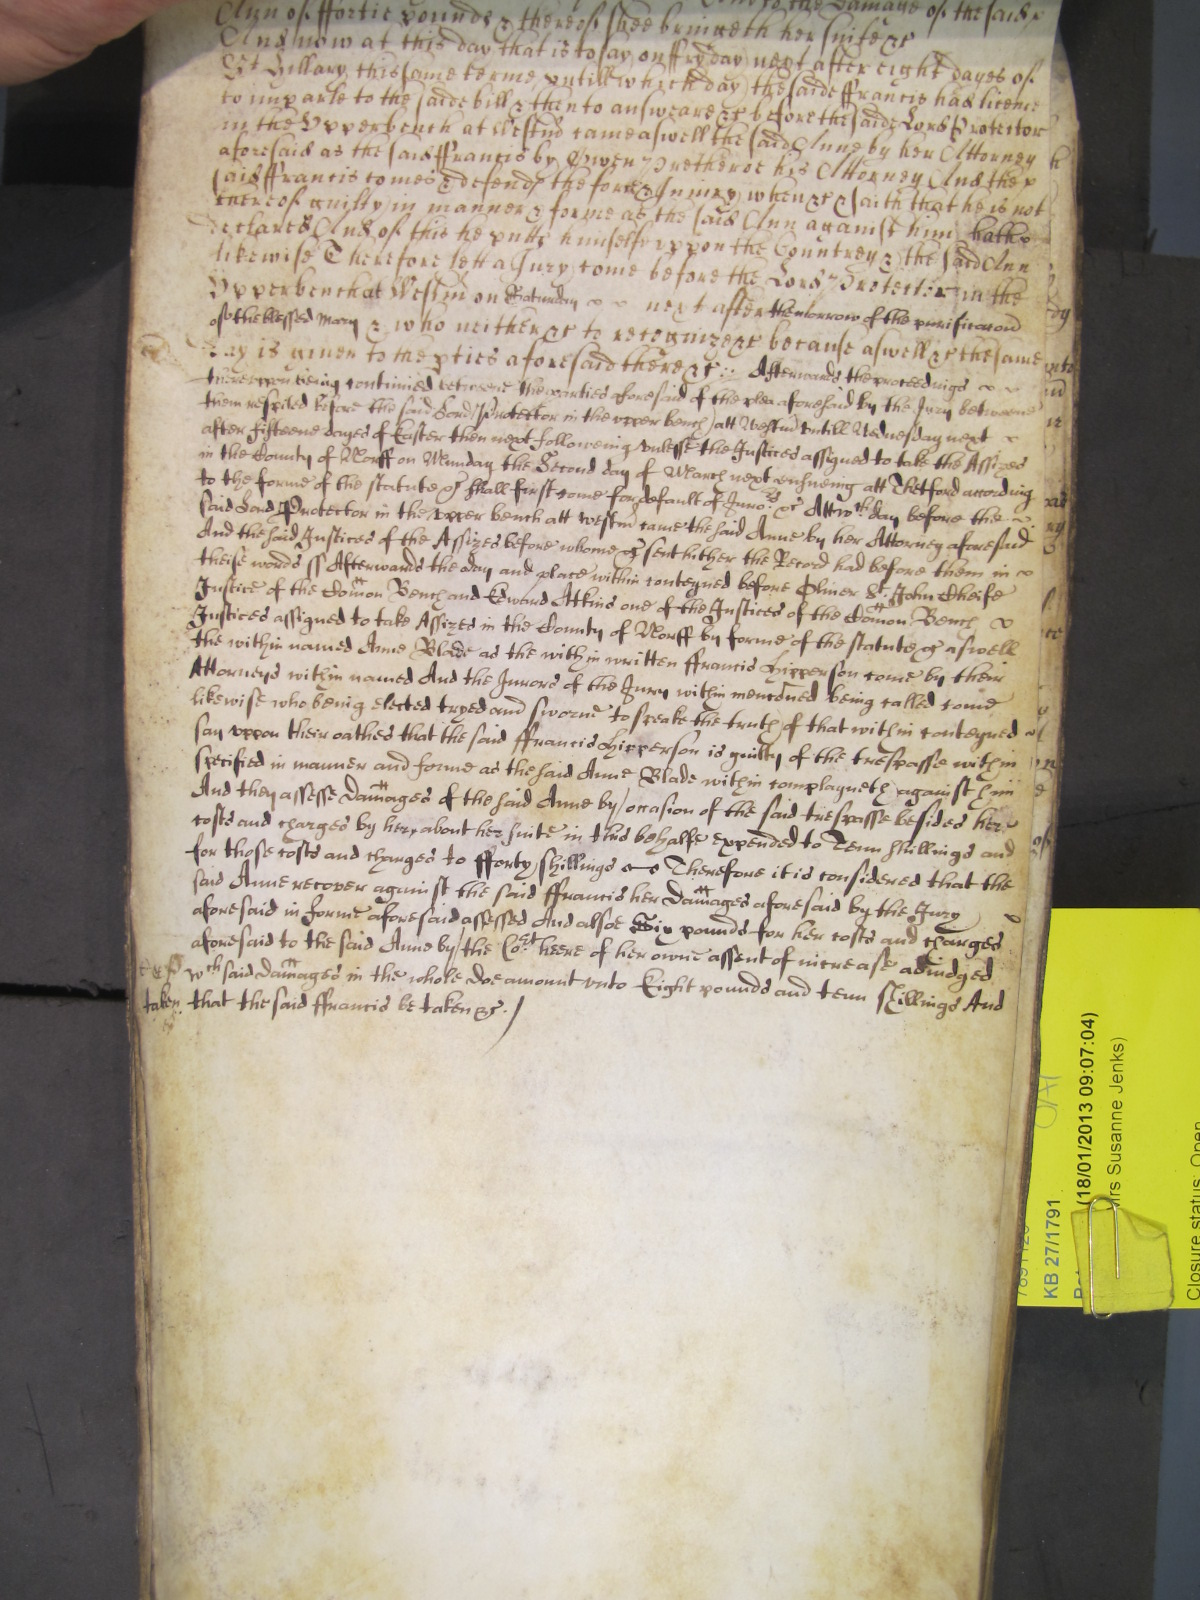 to the damage of the said
Ann of ffortie pounds & thereof shee bringeth her suite &c
And now at this day that is to say on ffryday next after eight dayes of
St Hillary this same terme untill which day the saide ffrancis had licence
to imparle to the saide bill & then to answeare &c before the saide Lord Protector
in the Upperbench at Westmr came aswell the said Anne by her Attorney
aforesaid as the said ffrancis by Owen Pretheroe his Attorney And the
said ffrancis comes & defends the force & Iniury when &c & saith that he is not
thereof guilty in manner & forme as the said Ann against him hath
declared And of this he putts himselfe uppon the Countrey & the said Ann
likewise Therefore lett a Jury come before the Lord Protector in the
Upperbench at Westmr on Saturday next after the morrow of the purificacion
of the blessed Mary & who neither &c to recognize &c because aswell &c the same
day is given to the pties aforesaid there &c Afterwards the proceedings
thereuppon being continued betweene the parties aforesaid of the plea aforesaid by the Jury betweene
them respited before the said Lord Protector in the upper bench att Westmr untill Wednesday next
after fifteene dayes of Easter then next following unlesse the Justices assigned to take the Assizes
in the County of Norff on Munday the Second day of March next ensueing att Thetford according
to the forme of the statute &c shall first come for default of Jurors &c Att wch day before the
said Lord Protector in the upper bench att Westmr came the said Anne by her Attorney aforesaid
And the said Justices of the Assizes before whome &c sent hither the Record had before them in
theise words ss Afterwards the day and place within conteyned before Oliver St John Cheife
Justice of the Comon Bench and Edward Atkins one of the Justices of the Comon Bench
Justices assigned to take Assizes in the County of Norff by forme of the statute &c aswell
the within named Anne Blade as the within written ffrancis Hipperson come by their
Attorneys within named And the Jurors of the Jury within menconed being called come
likewise who being elected tryed and sworne to speake the truth of that within conteyned
say uppon their oathes that the said ffrancis Hipperson is guilty of the trespasse within
specified in manner and forme as the said Anne Blade within complayneth against him
And they assesse Damages of the said Anne by occasion of the said trespasse besides her
costs and charges by her about her suite in this behalfe expended to Tenn shillings and
for those costs and charges to fforty shillings Therefore it is considered that the
said Anne recover against the said ffrancis her Damages aforesaid by the Jury
aforesaid in forme aforesaid assessed And alsoe Six pounds for her costs and charges
aforesaid to the said Anne by the Cort heere of her owne assent of increase adiudged
wch said Damages in the whole doe amount unto Eight pounds and tenn shillings And
taken
that the said ffrancis be taken &c.
KB 27/1791
(18/01/2013 09:07:04)
Mrs Susanne Jenks)
Closure status: Open